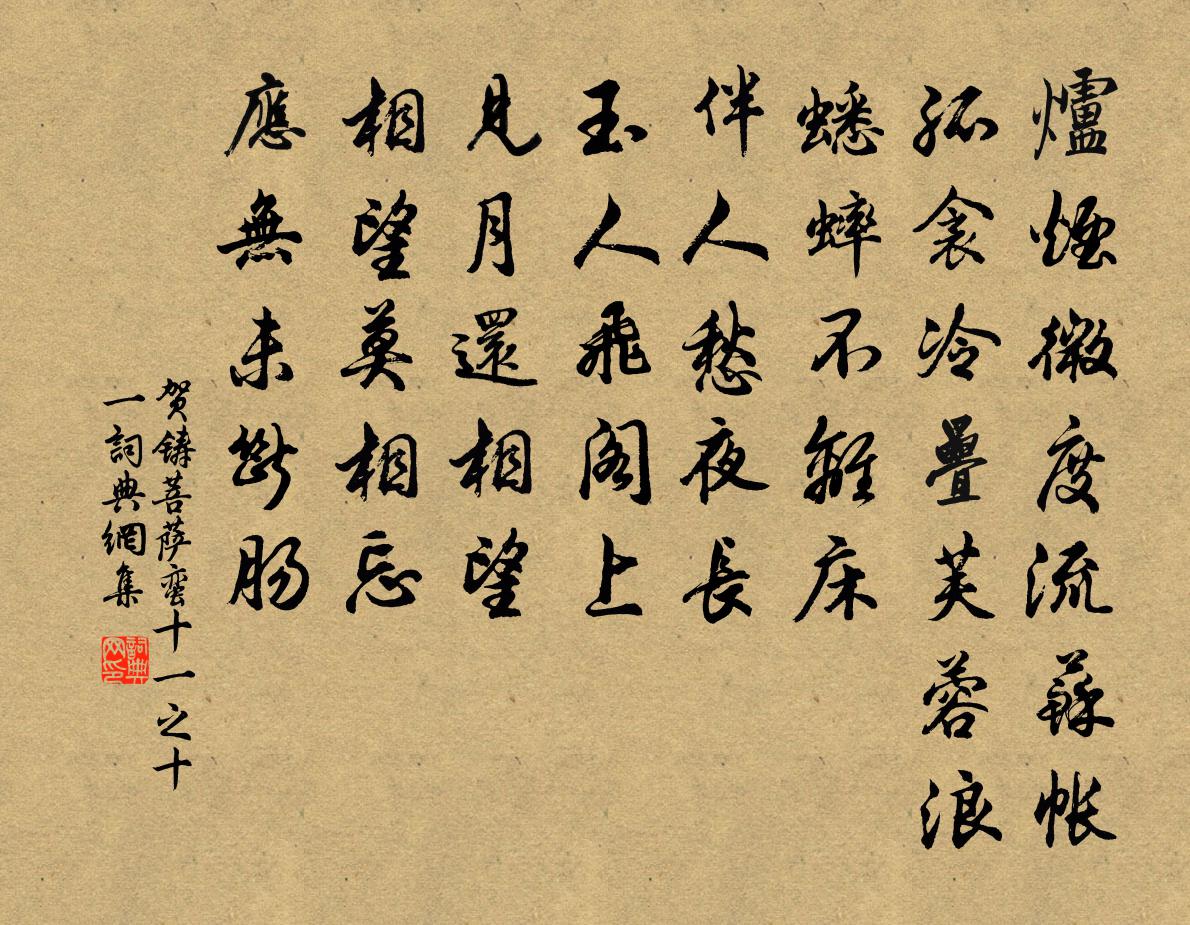 爐煙微度流蘇帳
孤衾冷疊芙蓉浪
蟋蟀不離床
伴人愁夜長
玉人飛阁上
見月還相望
相望莫相忘
應無未斷腸
贺鑄菩萨蛮十一之十
一詞典網集
詞典网印